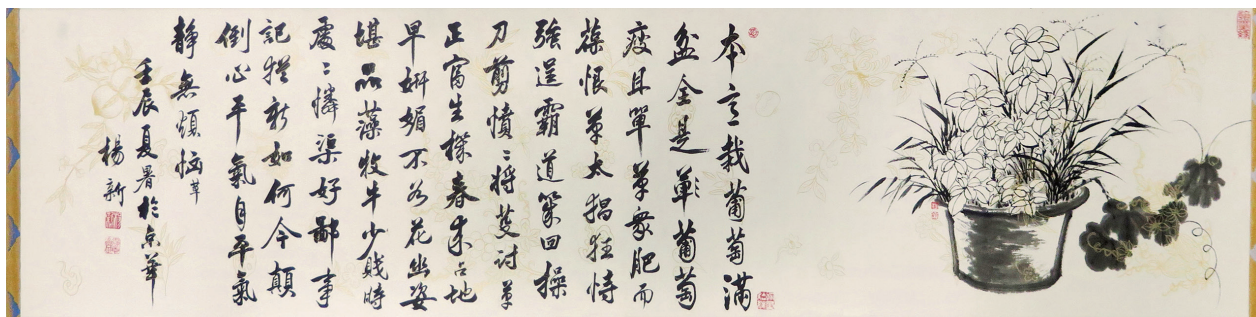 本意栽葡萄滿
盆全是草葡萄
瘦且單草衆肥而
葆恨草太猖狂恃
強逞霸道回操
刀剪憤〻將芟討草
正富生機春來占地
早妍媚不花幽姿
堪品藻牧牛少賤時
處〻憐渠好鄙事
記猶新如何今顛
倒心平氣自平氣
靜無煩惱草
壬辰夏暑於京華
楊新